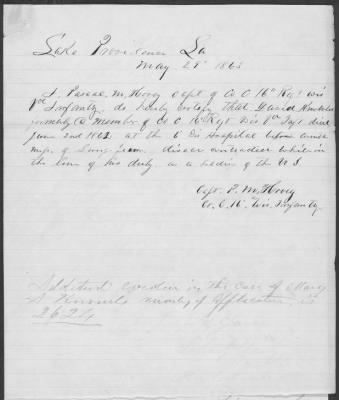 Lake Providence La
May 28" 1863
I, Pascal M. Hovey capt of Co C 16th Regt Wis
Vol Infantry do hereby certify that David
formerly a member of Co C. 16th Regt Wis Vol Inft died
June 2nd 1862 at the 6 Div Hospital
of disease contracted while in
the line of his duty as a soldier of the U S
Capt. P. M. Hovey
Co. C. 16. Wis. Infantry
Additional evidence in the case of Mary
A number of application is
2624